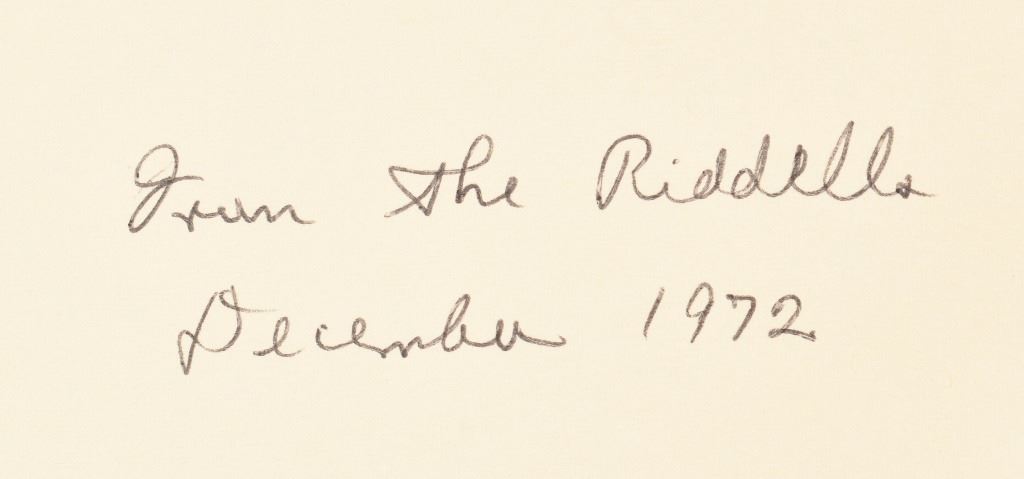 From the Riddells
December 1972